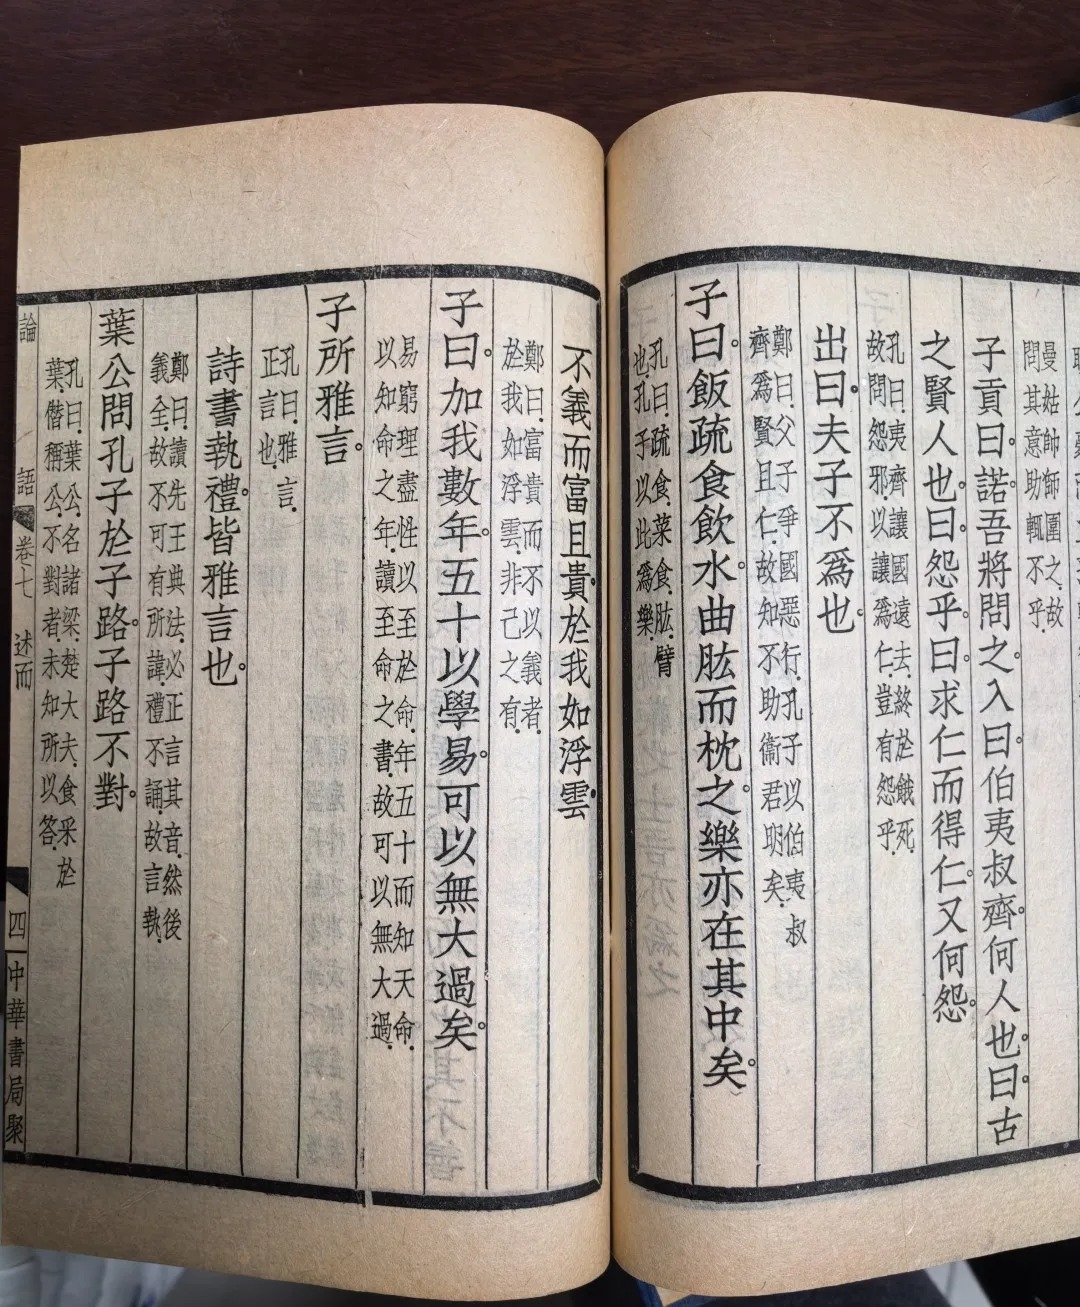 曼姑帥師圍之。故
問其意助輒不乎。
子貢曰。諾。吾將問之。入曰。伯夷叔齊。何人也。曰。古
之賢人也。曰。怨乎。曰。求仁而得仁。又何怨。
孔曰。夷齊讓國遠去。終於餓死。
故問怨邪。以讓爲仁。豈有怨乎。
出曰。夫子不爲也。
鄭曰。父子爭國惡行。孔子以伯夷叔
齊爲賢且仁。故知不助衞君明矣。
子曰。飯疏食飲水。曲肱而枕之。樂亦在其中矣。
孔曰。疏食。菜食。肱。臂
也。孔子以此爲樂。
不義而富且貴。於我如浮雲。
鄭曰。富貴而不以義者。
於我如浮雲。非己之有。
子曰。加我數年。五十以學易。可以無大過矣。
易窮理盡性以至於命。年五十而知天命。
以知命之年。讀至命之書。故可以無大過。
子所雅言。
孔曰。雅言。
正言也。
詩書執禮。皆雅言也。
鄭曰。讀先王典法。必正言其音。然後
義全。故不可有所諱。禮不誦。故言執。
葉公問孔子於子路。子路不對。
孔曰。葉公名諸梁。楚大夫。食采於
葉。僭稱公。不對者。未知所以答。
論語 卷七 述而
四 中華書局聚